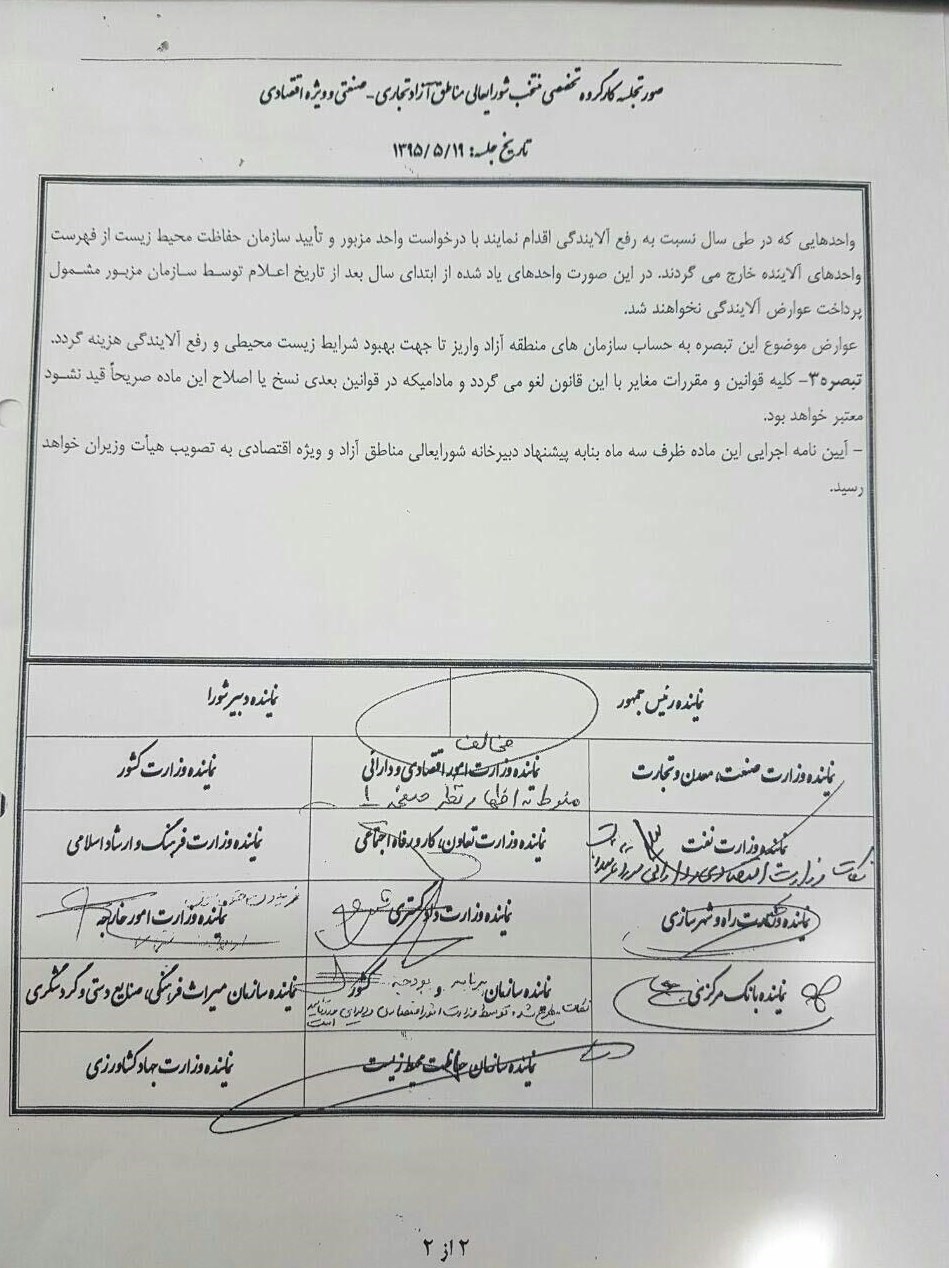 صورتجلسه کارگروه تخصصی منتخب شورایعالی مناطق آزاد تجاری - صنعتی و ویژه اقتصادی
تاریخ جلسه: ۱۳۹۵/۵/۱۹
واحدهایی که در طی سال نسبت به رفع آلایندگی اقدام نمایند با درخواست واحد مزبور و تأیید سازمان حفاظت محیط زیست از فهرست
واحدهای آلاینده خارج می گردند. در این صورت واحدهای یاد شده از ابتدای سال بعد از تاریخ اعلام توسط سازمان مزبور مشمول
پرداخت عوارض آلایندگی نخواهند شد.
عوارض موضوع این تبصره به حساب سازمان های منطقه آزاد واریز تا جهت بهبود شرایط زیست محیطی و رفع آلایندگی هزینه گردد.
تبصره۳- کلیه قوانین و مقررات مغایر با این قانون لغو می گردد و مادامیکه در قوانین بعدی نسخ یا اصلاح این ماده صریحاً قید نشود
معتبر خواهد بود.
- آیین نامه اجرایی این ماده ظرف سه ماه بنابه پیشنهاد دبیرخانه شورایعالی مناطق آزاد و ویژه اقتصادی به تصویب هیأت وزیران خواهد
رسید.
نماینده رئیس جمهور
نماینده دبیر شورا
مخالف
نماینده وزارت صنعت، معدن و تجارت
نماینده وزارت امور اقتصادی و دارائی
نماینده وزارت کشور
منوط به اظهار نظر صفحه ۱
نماینده وزارت نفت
نماینده وزارت تعاون، کار و رفاه اجتماعی
نماینده وزارت فرهنگ و ارشاد اسلامی
نکات وزارت اقتصادی و دارائی
نماینده وزارت راه و شهرسازی
نماینده وزارت دادگستری
نماینده وزارت امور خارجه
نماینده بانک مرکزی
نماینده سازمان برنامه و بودجه کشور
نماینده سازمان میراث فرهنگی، صنایع دستی و گردشگری
نکات مطرح شده توسط وزارت امور اقتصادی و دارایی
است
نماینده سازمان حفاظت محیط زیست
نماینده وزارت جهاد کشاورزی
۲ از ۲